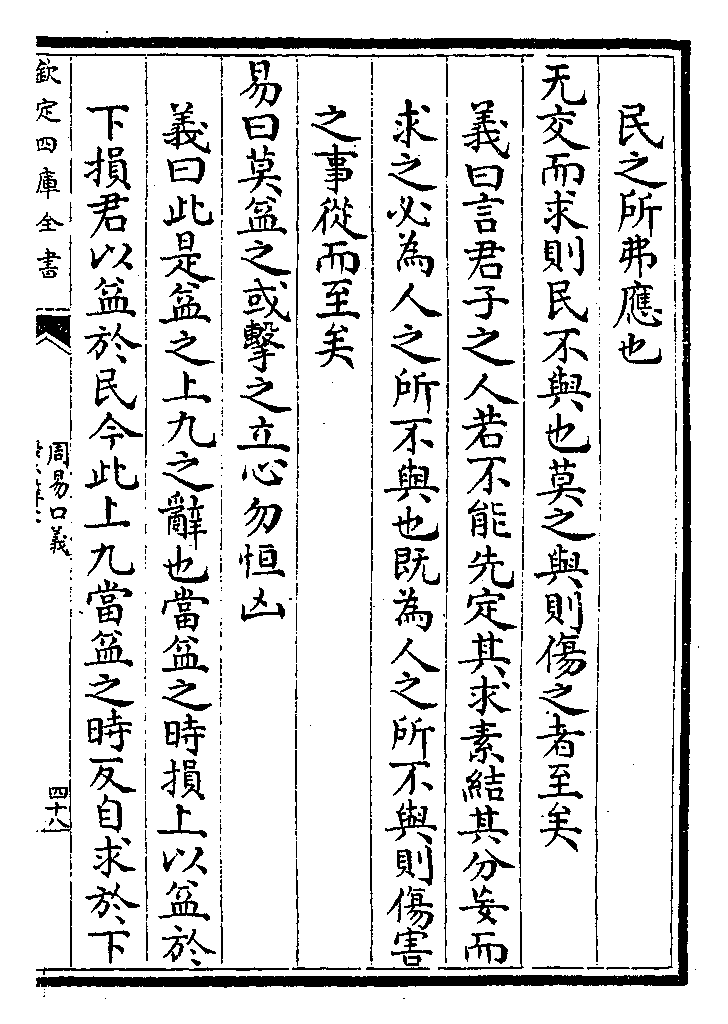 民之所弗應也
无交而求則民不與也莫之與則傷之者至矣
義曰言君子之人若不能先定其求素結其分妄而
求之必為人之所不與也既為人之所不與則傷害
之事從而至矣
易曰莫益之或擊之立心勿恒凶
義曰此是益之上九之辭也當益之時損上以益於
下損君以益於民今此上九當益之時反自求於下
欽定四庫全書
周易口義
四十八